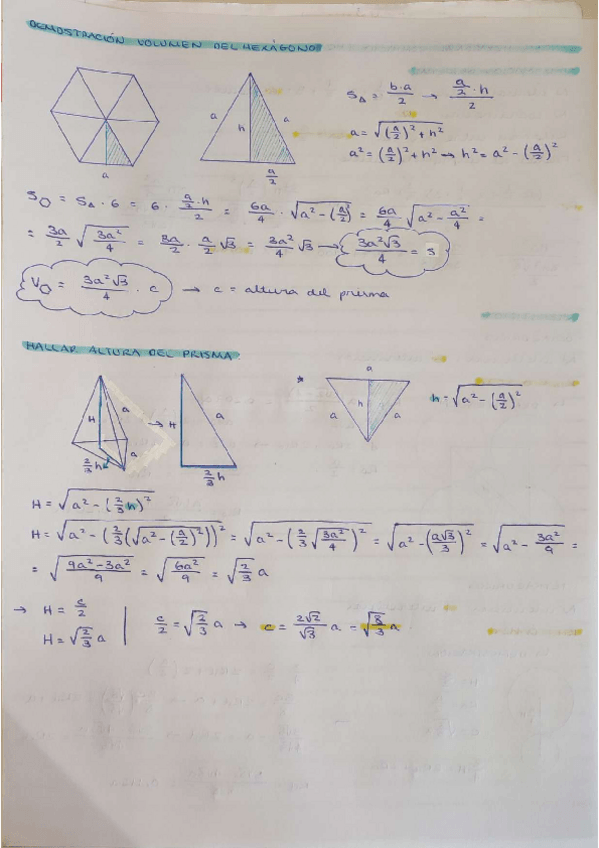 DEMOSTRACIÓN VOLUMEN DEL HEXÁGONO
a
a h a
a/2
S△ = b·a/2 → (a/2 · h)/2
a = √((a/2)² + h²)
a² = (a/2)² + h² → h² = a² - (a/2)²
S⬡ = S△ · 6 = 6 · (a/2 · h)/2 = 6a/4 · √(a² - (a/2)²) = 6a/4 √(a² - a²/4) =
= 3a/2 √(3a²/4) = 3a/2 · a/2 √3 = 3a²/4 √3 → 3a²√3/4 = S
V⬡ = 3a²√3/4 · c → c = altura del prisma
HALLAR ALTURA DEL PRISMA
H a a 2/3 h
→ H a 2/3 h
* a a h a
h = √(a² - (a/2)²)
H = √(a² - (2/3 h)²)
H = √(a² - (2/3(√(a² - (a/2)²))²) = √(a² - (2/3 √(3a²/4))²) = √(a² - (a√3/3)²) = √(a² - 3a²/9) =
= √((9a² - 3a²)/9) = √(6a²/9) = √(2/3) a
→ H = c/2
H = √(2/3) a
c/2 = √(2/3) a → c = 2√2/√3 a = √(8/3) a